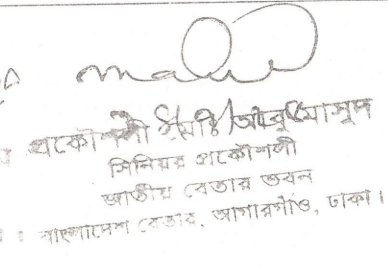 প্রকৌশলী
সিনিয়র প্রকৌশলী
জাতীয় বেতার ভবন
বাংলাদেশ বেতার, আগারগাঁও, ঢাকা।